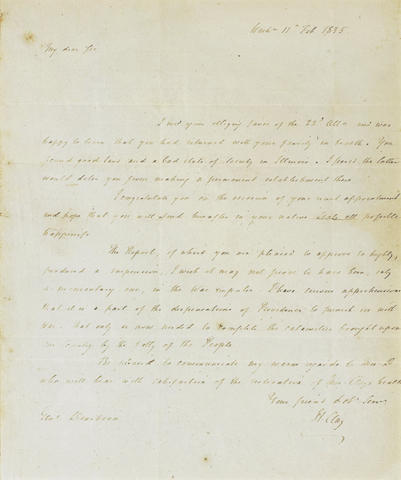 Washn 11h Feb 1835
My dear Sir
I recd your obliging favor of the 23d Ulto and was
happy to learn that you had returned with your family in health. You
found good land and a bad state of society in Illinois. I feared the latter
would deter you from making a permanent establishment there.
I congratulate you on the occasion of your recent appointment
and hope that you will find hereafter in your native state all possible
happiness.
The Report, of which you are pleased to approve so highly,
produced a impression, I wish it may not prove to have been, only
a momentary one, on the War impulse. I have serious apprehensions
that it is a part of the dispensations of Providence to permit
War. That only is now needed to complete the calamities brought upon
our Country by the folly of the People.
Be pleased to communicate my warm regards to Mrs.
who will hear with satisfaction of the restoration of Mrs. Clays health
Your friend & obt Servt
H. Clay